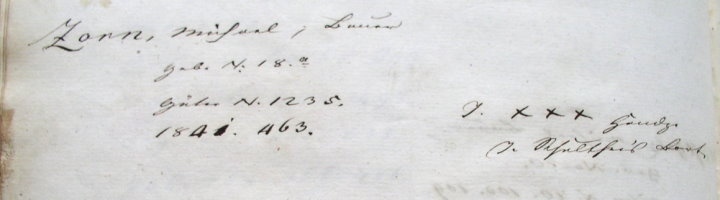 Zorn, Michael, Bauer
Geb. N. 18.a
Güter N. 1235.
1841. 463.
T. x x x Handz.
T. Schultheis